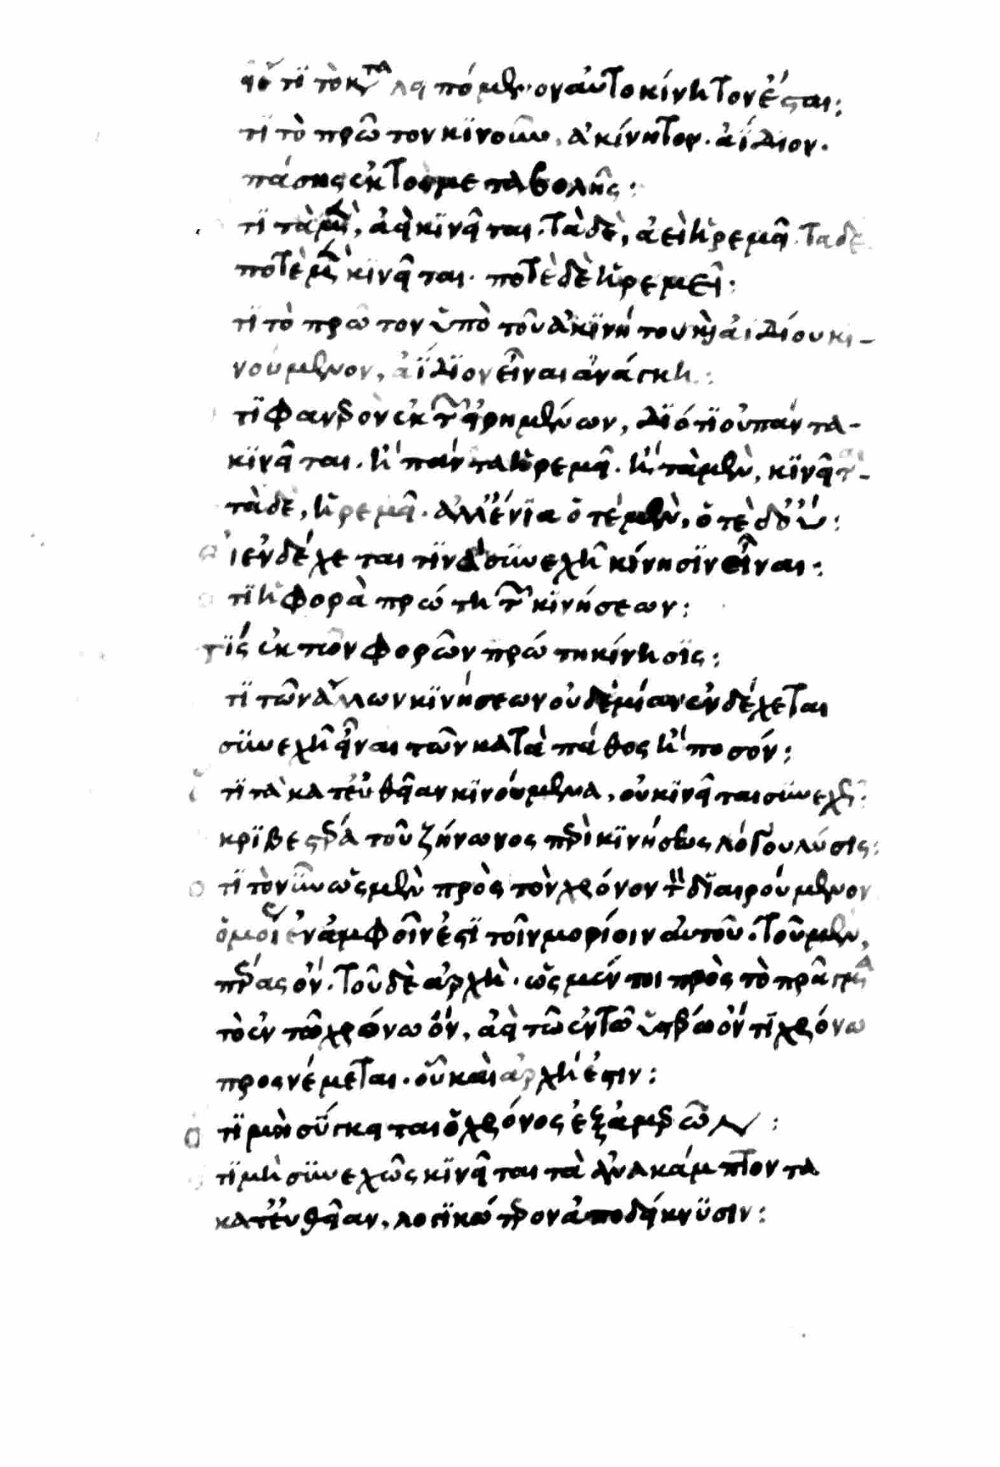 ὅτι τὸ κατα λειπόμενον αὐτοκίνητον ἔσται:
τί τὸ πρῶτον κινοῦν, ἀκίνητον· ἀΐδιον·
πάσης ἐκτὸς μεταβολῆς:
τί τὰ μὲν, ἀεὶ κινεῖται· τὰ δὲ, ἀεὶ ἠρεμεῖ· τὰ δὲ
ποτὲ μὲν κινεῖται· ποτὲ δὲ ἠρεμεῖ:
τί τὸ πρῶτον ὑπὸ τοῦ ἀκινήτου καὶ ἀϊδίου κι-
νούμενον, ἀΐδιον εἶναι ἀνάγκη:
τί φανερὸν ἐκ τῶν εἰρημένων, διότι οὐ πάντα-
κινεῖται· ἢ πάντα ἠρεμεῖ· ἢ τὰ μὲν, κινεῖται-
τὰ δὲ, ἠρεμεῖ· ἀλλ' ἔνια ὁτὲ μὲν, ὁτὲ δ' οὔ:
εἰ ἐνδέχεται τινὰ συνεχῆ κίνησιν εἶναι:
τί ἡ φορὰ πρώτη τῶν κινήσεων:
τίς ἐκ τῶν φορῶν πρώτη κίνησις:
τί τῶν ἄλλων κινήσεων οὐδεμίαν ἐνδέχεται
συνεχῆ εἶναι τῶν κατὰ πάθος ἢ ποσόν:
τί τὰ κατ' εὐθεῖαν κινούμενα, οὐ κινεῖται συνεχῆ:
κριβεστέρα τοῦ ζήνωνος περὶ κινήσεως λόγου λύσις:
τί τὸ νῦν ὡς μὲν πρὸς τὸν χρόνον τὸν διαιρούμενον
ὁμοίως ἐν ἀμφοῖν ἐστι τοῖν μορίοιν αὐτοῦ· τοῦ μὲν,
πέρας ὄν· τοῦ δὲ ἀρχὴ· ὡς μέντοι πρὸς τὸ πρᾶγμα
τὸ ἐν τῷ χρόνῳ ὄν, ἀεὶ τῷ ἐν τῷ ὑστέρῳ ὄντι χρόνῳ
προσνέμεται· οὗ καὶ ἀρχή ἐστιν:
τί μὴ σύγκειται ὁ χρόνος ἐξ ἀμερῶν:
τί μὴ συνεχῶς κινεῖται τὰ ἀνακάμπτοντα
κατ' εὐθεῖαν, λογικώτερον ἀποδείκνυσιν: